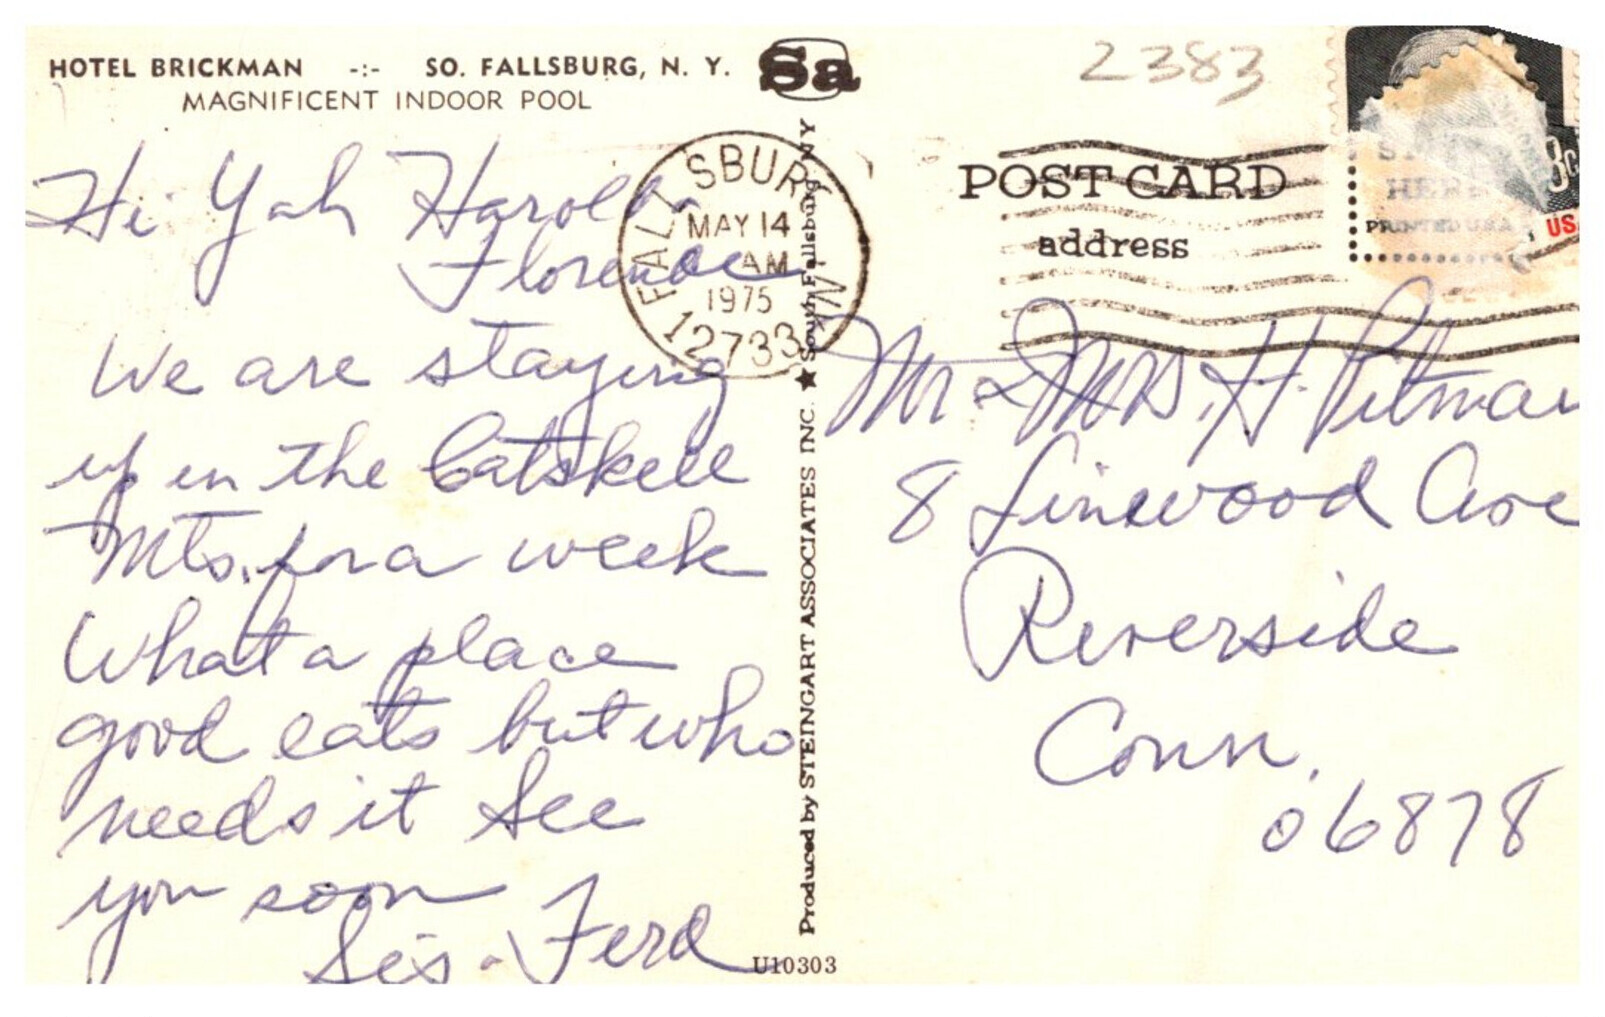 HOTEL BRICKMAN -:- SO. FALLSBURG, N. Y.
MAGNIFICENT INDOOR POOL
Sa
2383
Hi Yah Harold
Florence
We are staying
up in the Catskill
Mts. for a week
What a place
good eats but who
needs it See
you soon
Sis - Ferd
FALLSBURG N.Y.
MAY 14
AM
1975
12733
Produced by STEINGART ASSOCIATES INC. ★ South Fallsburg NY
U10303
POST CARD
address
HERE
PRINTED USA
8c
US
Mr & Mrs. H. Pitman
8 Linwood Ave
Riverside
Conn.
06878